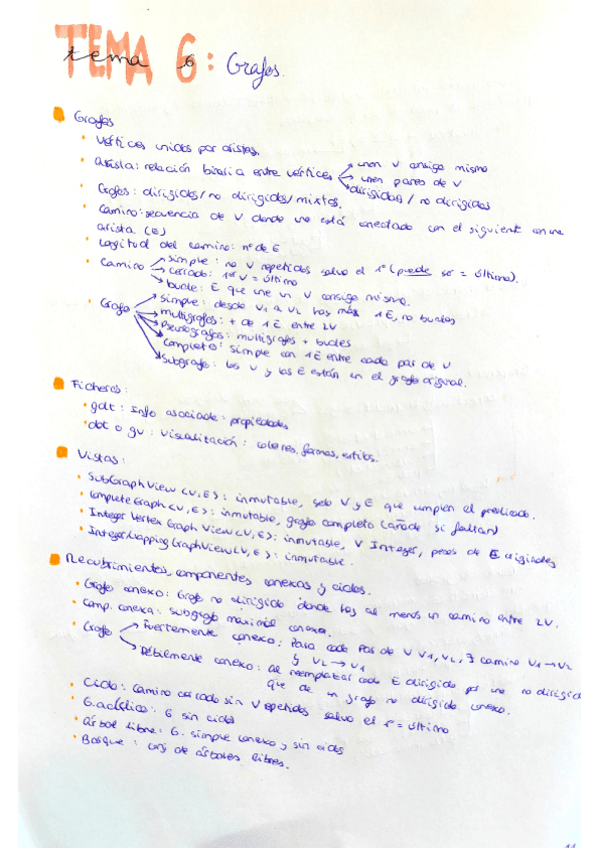 TEMA 6: Grafos.
tema 6
Grafos
• Vértices unidos por aristas.
• arista: relación binaria entre vértices → unen V consigo mismo
→ unen pares de V
→ dirigidas / no dirigidas
• Grafos: dirigidos/no dirigidos/mixtos.
• Camino: secuencia de V donde uno está conectado con el siguiente en una
arista (E)
• Longitud del camino: nº de E
• Camino → simple: no V repetidos salvo el 1º (puede ser = último).
→ cerrado: 1er V = último
→ bucle: E que une un V consigo mismo.
• Grafo → simple: desde V1 a V2 hay máx 1E, no bucles
→ multigrafos: + de 1E entre 2V
→ pseudografos: multigrafos + bucles
→ completo: simple con 1E entre cada par de V
→ subgrafo: los V y las E están en el grafo original.
Ficheros:
• gdt: Info asociada: propiedades
• dot o gv: visualización: colores, formas, estilos.
Vistas:
• SubGraphView<V,E>: inmutable, solo V y E que cumplen el predicado.
• CompleteGraph<V,E>: inmutable, grafo completo (añade si faltan)
• Integer Vertex Graph View<V,E>: inmutable, V Integer, pesos de E originales
• IntegerMappingGraphView<V,E>: inmutable.
Recubrimientos, componentes conexas y ciclos.
• Grafo conexo: Grafo no dirigido donde hay al menos un camino entre 2V.
• Comp. conexa: subgrafo maximal conexo.
• Grafo → Fuertemente conexo: Para cada par de V V1, V2, ∃ camino V1→V2
y V2→V1
→ Débilmente conexo: al reemplazar cada E dirigida por una no dirigida
que da un grafo no dirigido conexo.
• Ciclo: camino cerrado sin V repetidos salvo el 1º = último
• G. acíclico: G sin ciclos
• árbol libre: G. simple conexo y sin ciclos
• Bosque: conj de árboles libres.